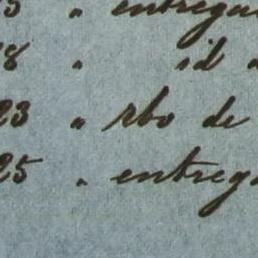 5 " entregu
8 " id
23 " rbo de
25 " entreg